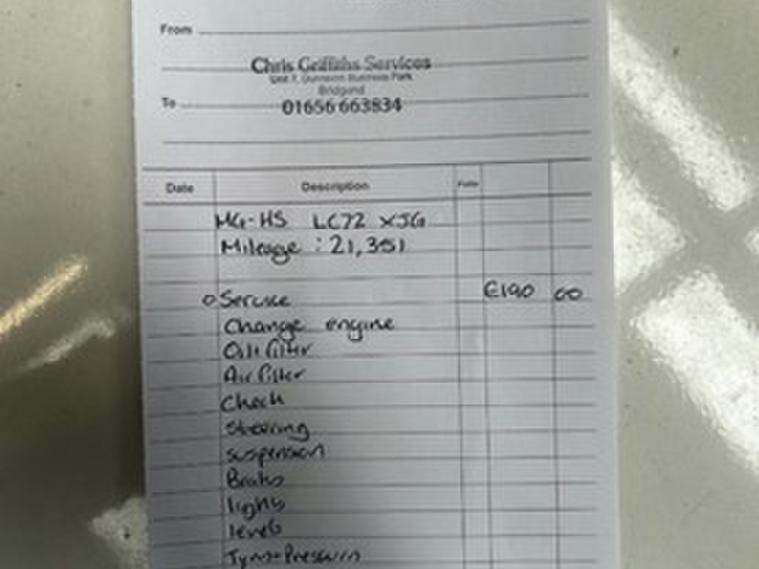 From
Chris Griffiths Services
Unit 7, Dunraven Business Park
Bridgend
To
01656 663834
Date Description Folio
MG-HS LC72 XJG
Mileage : 21,351
Service £190 00
Change engine
Oil + filter
Air filter
Check
Steering
suspension
Brakes
lights
levels
Tyres + Pressures